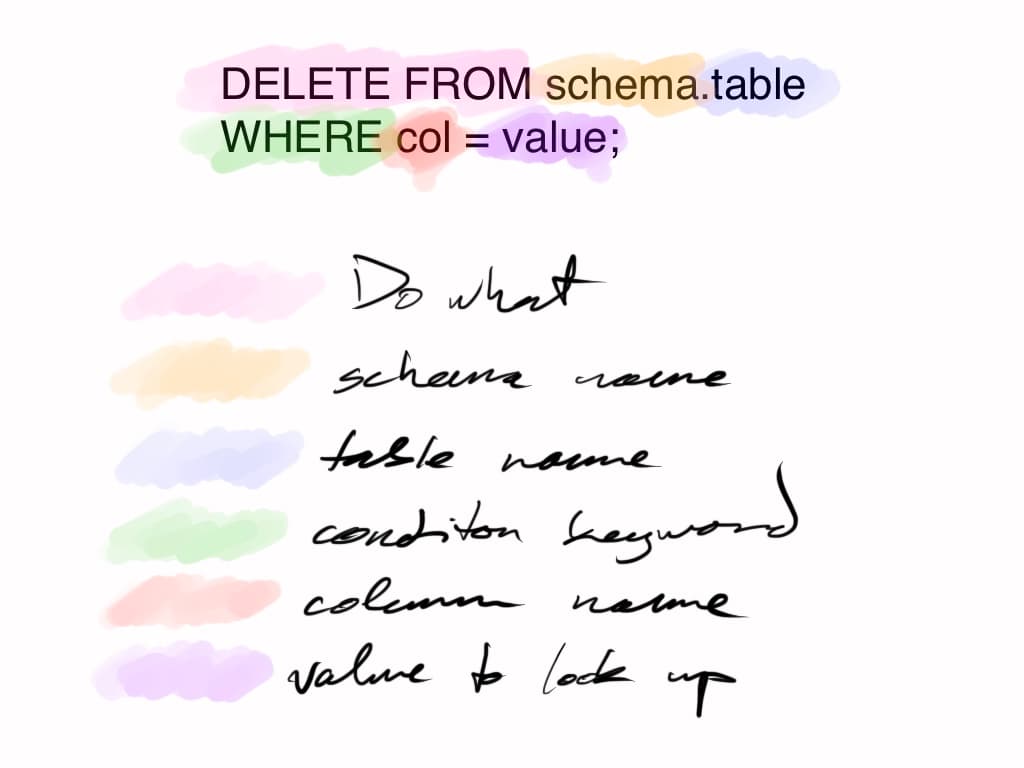 DELETE FROM schema.table
WHERE col = value;
Do what
schema name
table name
conditon keyword
column name
value to look up